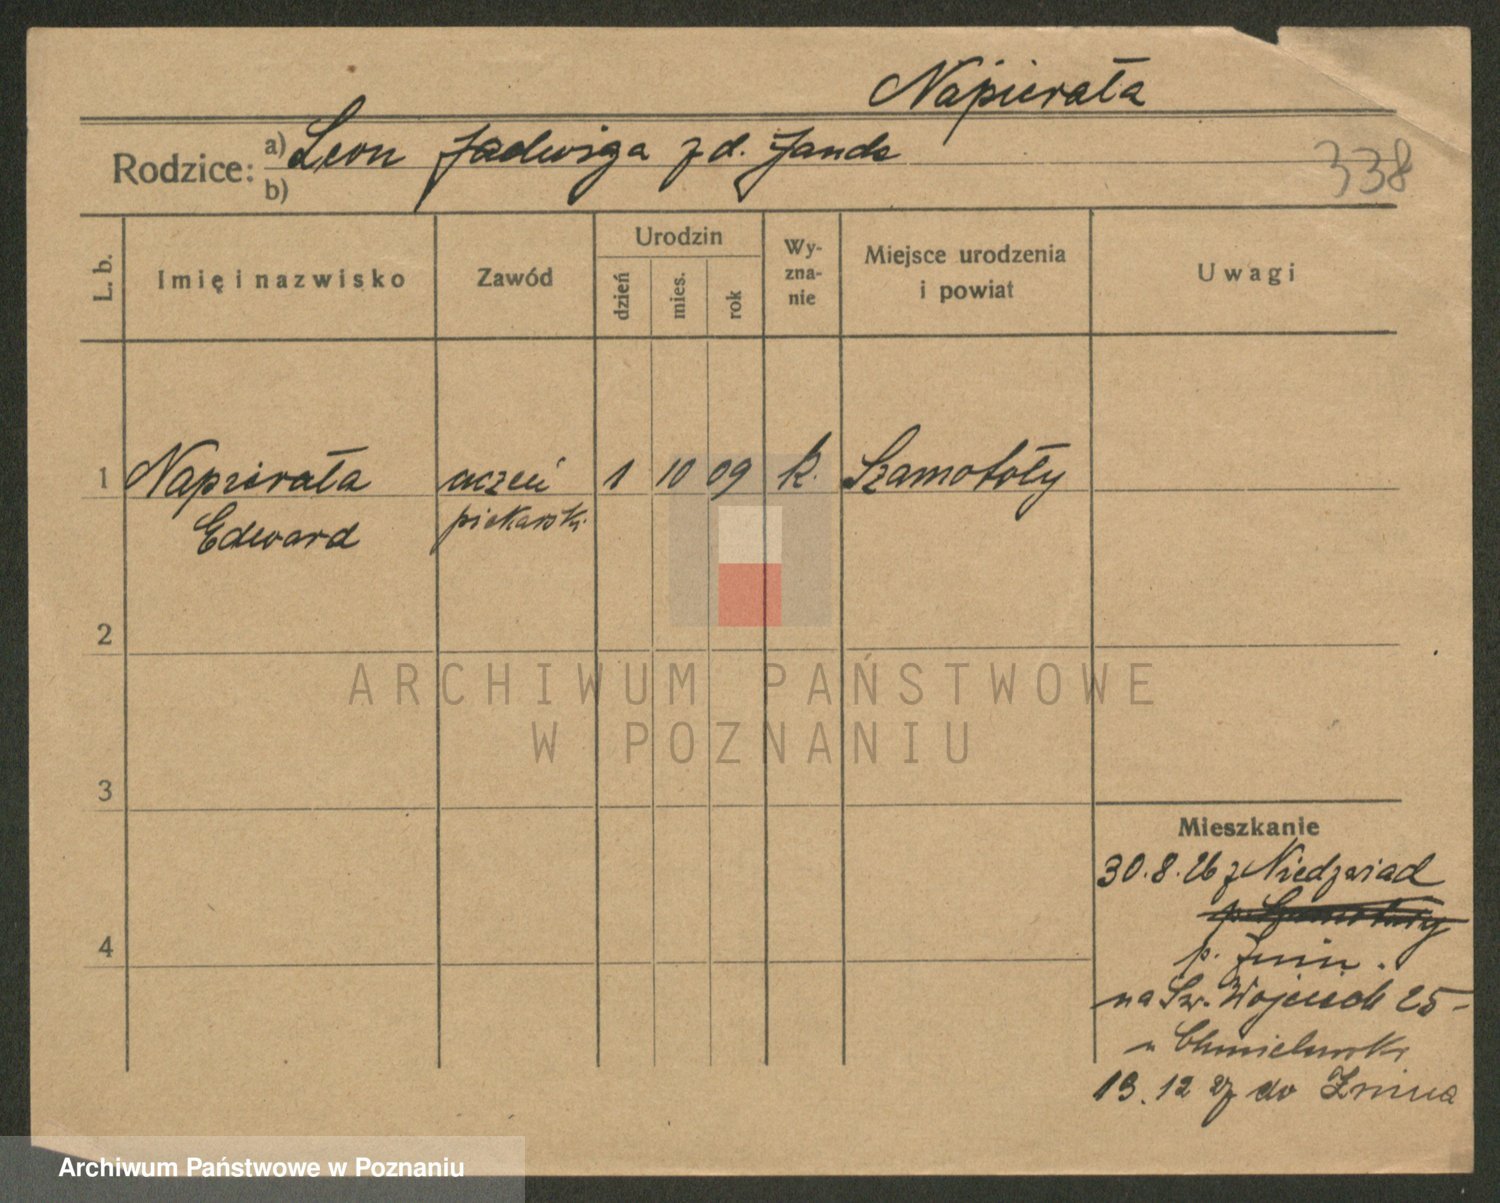 Napierała
Rodzice: a) Leon Jadwiga z d. Janda
b)
338
L. b.
Imię i nazwisko
Zawód
Urodzin
dzień
mies.
rok
Wy-
zna-
nie
Miejsce urodzenia
i powiat
Uwagi
1 Napierała uczeń 1 10 09 k. Szamotoły
Edward piekarski
2
3
4
Mieszkanie
30.8.26 z Niedzwiad
p. Żnin.
na Św. Wojciech 25-
u Chmielewski
13.12 27 do Żnina
ARCHIWUM PAŃSTWOWE
W POZNANIU
Archiwum Państwowe w Poznaniu